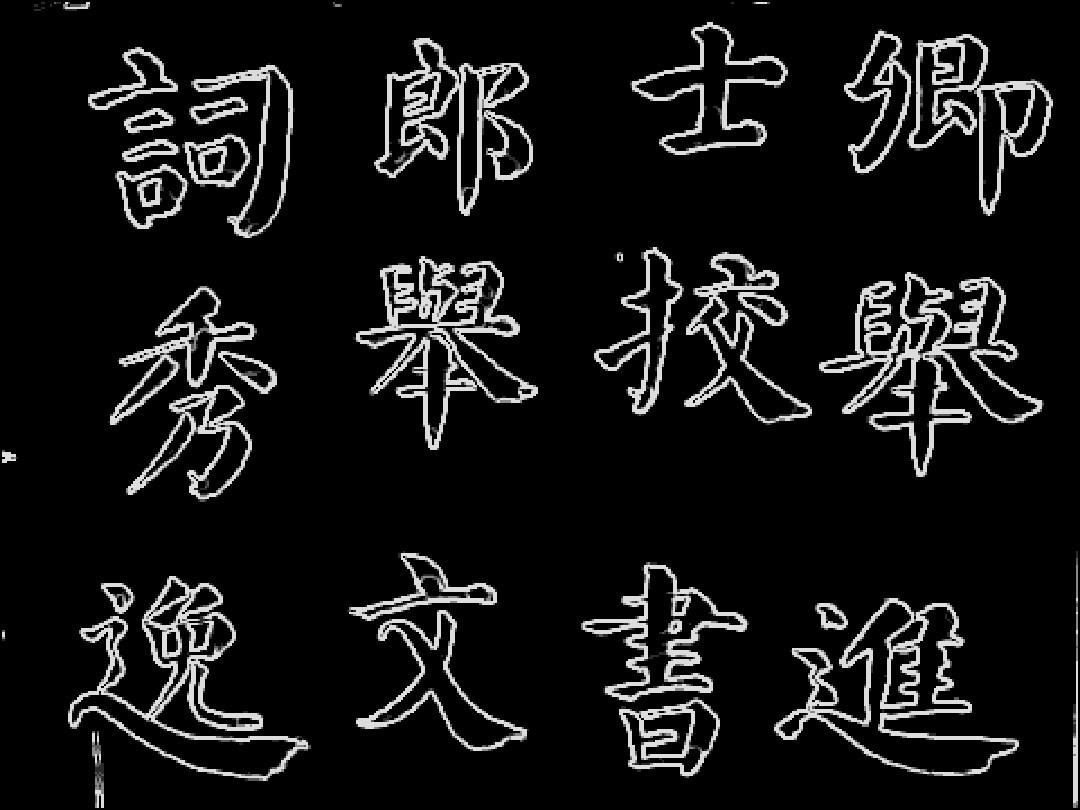 卿舉進
士挍書
郎舉文
詞秀逸